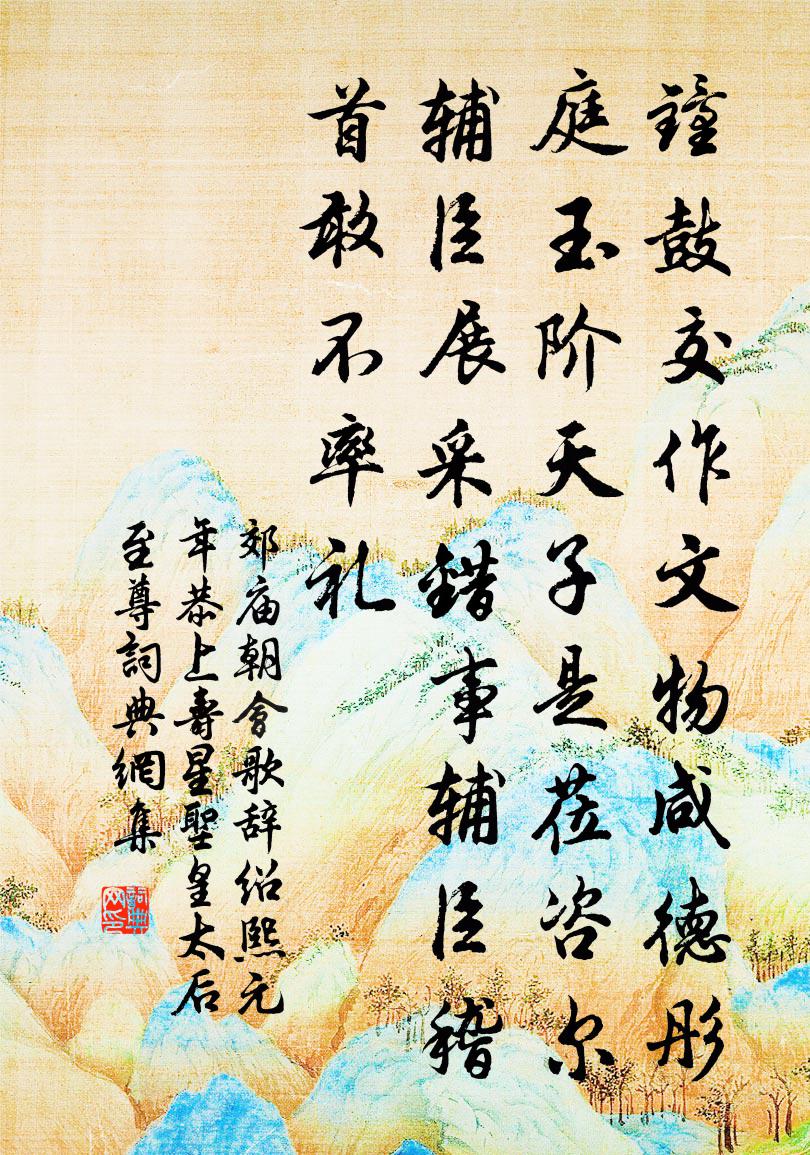 鐘鼓交作文物咸德彤
庭玉阶天子是莅咨尔
辅臣展采錯事辅臣稽
首敢不率礼
郊庙朝會歌辞绍熙元
年恭上壽星聖皇太后
至尊詞典網集
詞典网印